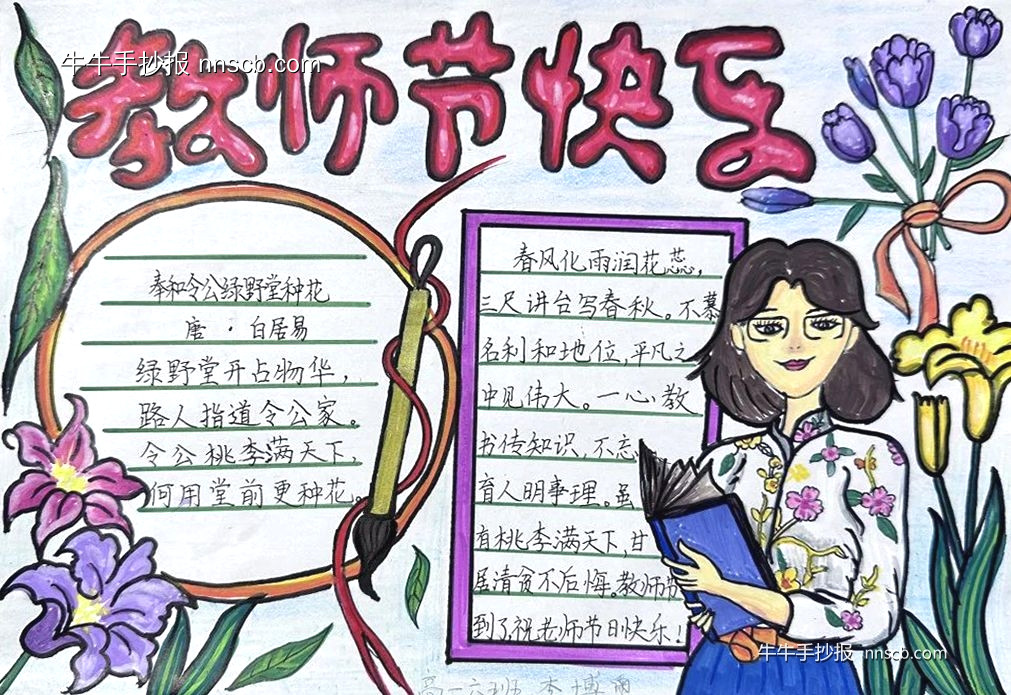 教师节快乐
牛牛手抄报 nnscb.com
奉和令公绿野堂种花
唐·白居易
绿野堂开占物华，
路人指道令公家。
令公桃李满天下，
何用堂前更种花。
春风化雨润花蕊，
三尺讲台写春秋。不慕
名利和地位，平凡之
中见伟大。一心教
书传知识，不忘
育人明事理。虽
有桃李满天下，甘
居清贫不后悔。教师节
到了祝老师节日快乐！
牛牛手抄报 nnscb.com
高一六班 李博